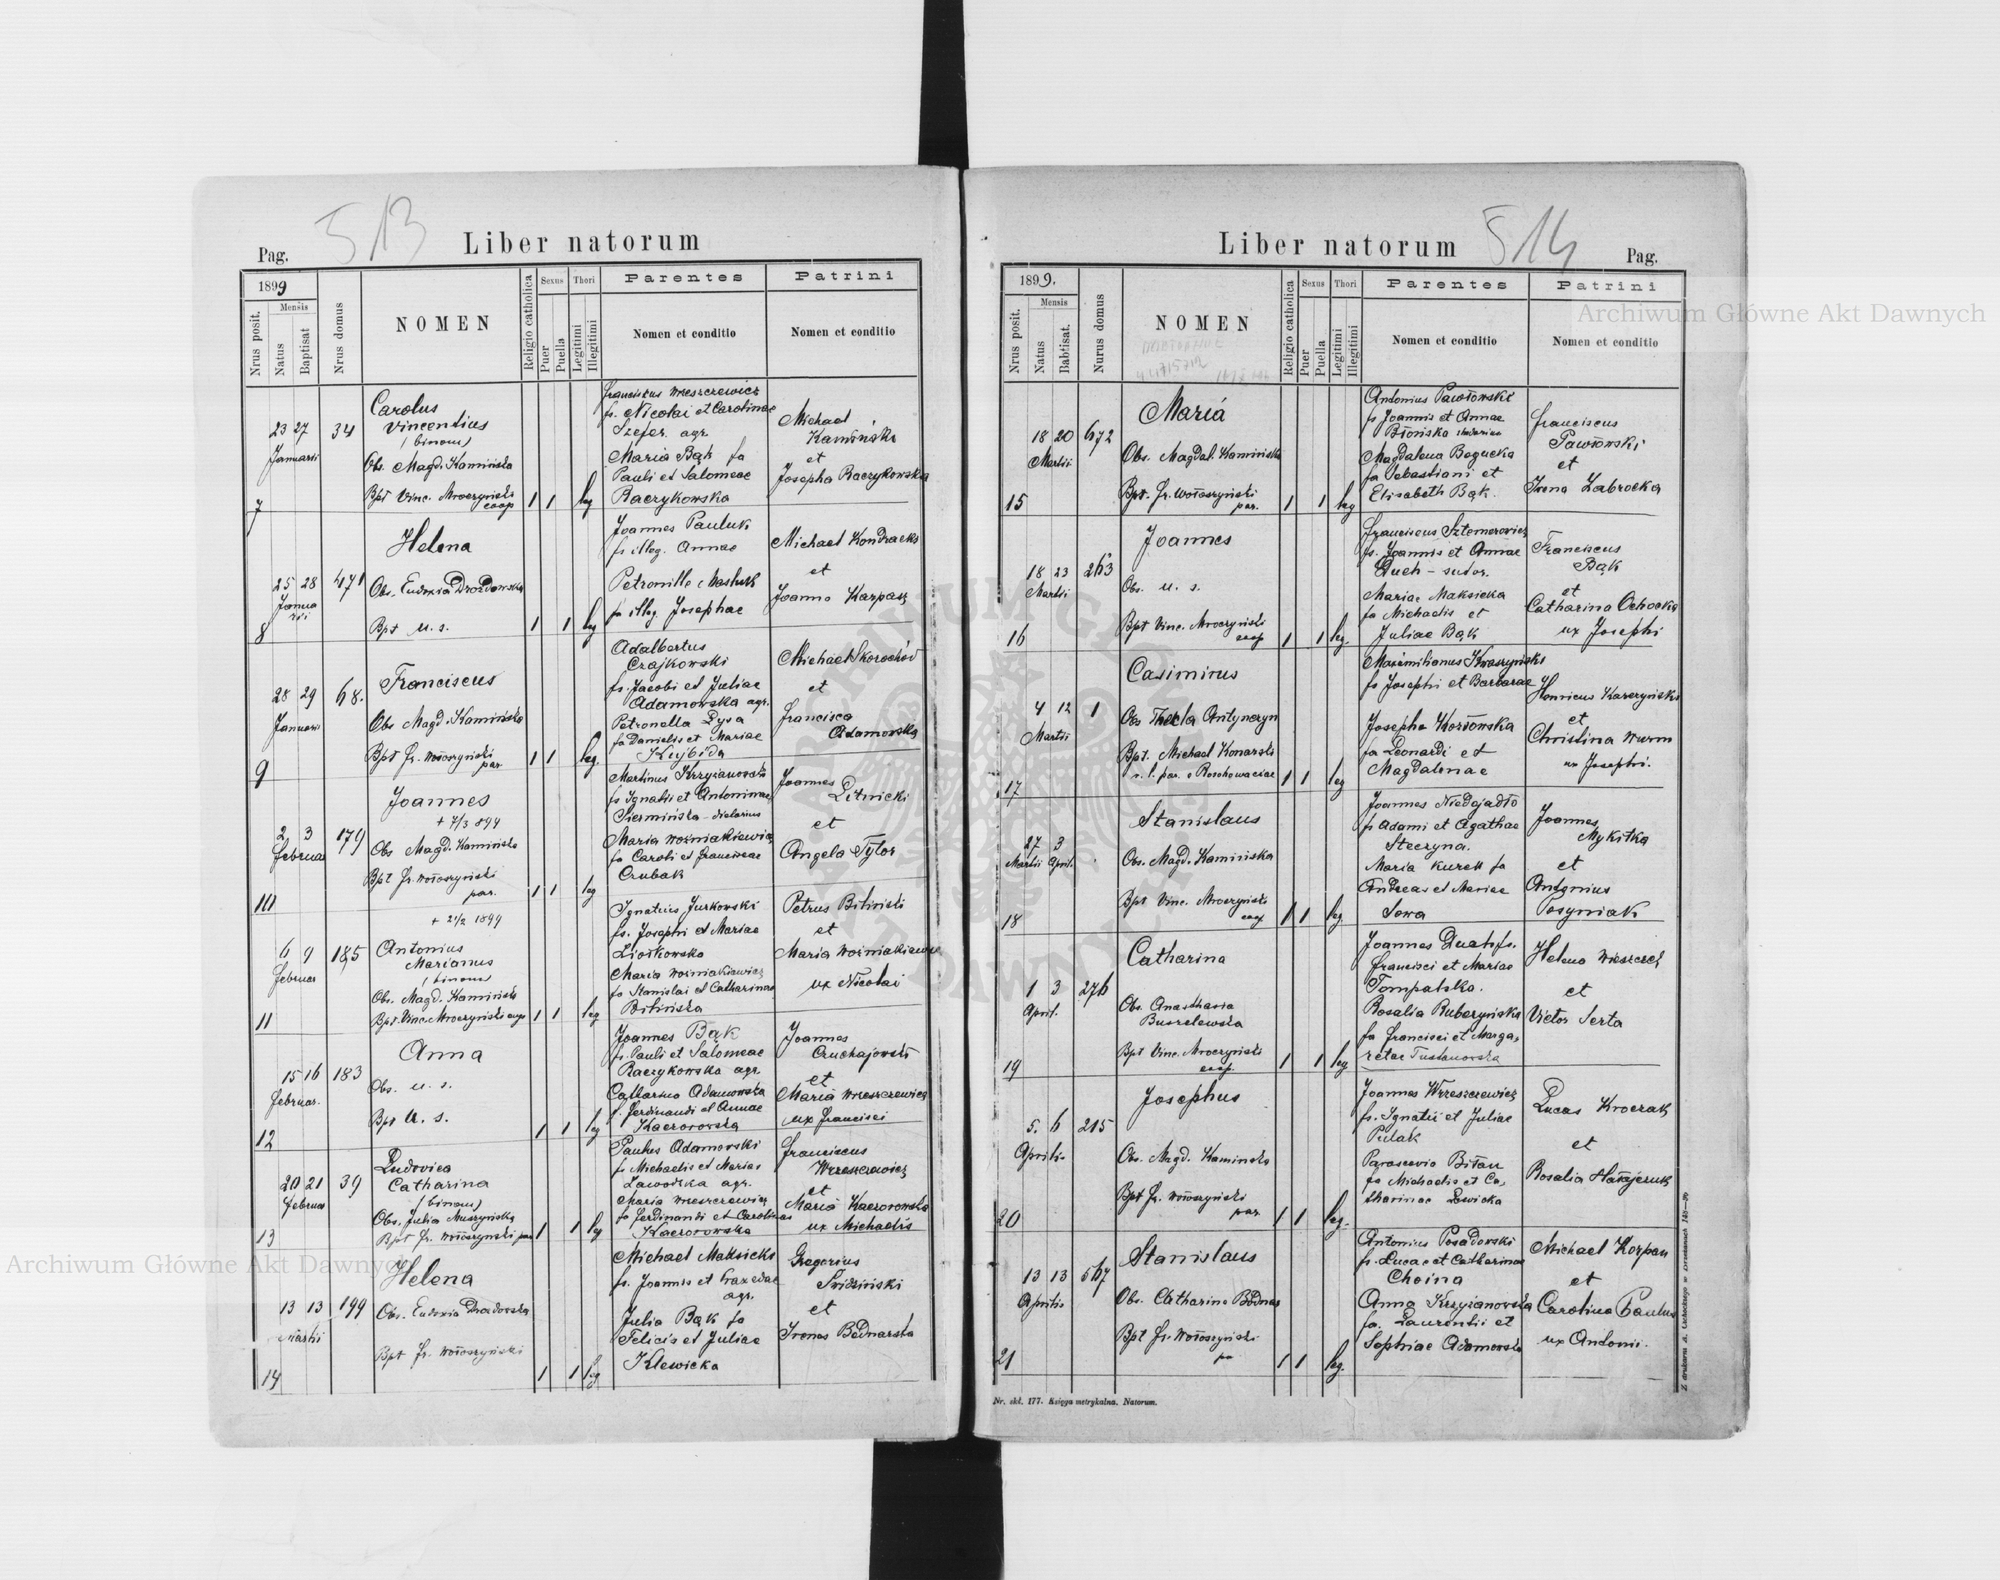 513
Liber natorum
Pag.
1899
Mensis
Nrus posit.
Natus
Baptisat
Nrus domus
NOMEN
Religio catholica
Sexus
Puer
Puella
Thori
Legitimi
Illegitimi
Parentes
Nomen et conditio
Patrini
Nomen et conditio
7
23 27
Januarii
34
Carolus
Vincentius
(binom)
Obs. Magd. Kamińska
Bpt Vinc. Mroczyński
coop
1 1 leg
Franciscus Wreszczewicz
fs. Nicolai et Carolinae
Szefer. agr.
Maria Bąk fa
Pauli et Salomeae
Raczykowska
Michael
Kamiński
et
Josepha Raczykowska
8
25 28
Janua
rii
471
Helena
Obs. Eudoxia Drozdowska
Bpt u. s.
1 1 leg
Joannes Pauluk
fs illeg. Annae
fa illeg. Josephae
Michael Kondracki
et
Joanna Karpasz
9
28 29
Januarii
68.
Franciscus
Obs Magd. Kamińska
Bpt fr. Wołoszyński
par
1 1 leg.
Adalbertus
Czajkowski
fs. Jacobi et Juliae
Adamowska agr.
Petronella Łysa
fa Danielis et Mariae
Kiybida
Michael Skorochód
et
Francisca
Adamowska
10
2 3
Februar
179
Joannes
+ 7/3 899
Obs Magd. Kamińska
Bpt fr. Wołoszyński
par.
1 1 leg
Martinus Krzyżanowski
fs Ignatii et Antoninae
Maria Woźniakiewicz
fa Caroli et Franciscae
Czubak
Joannes
Litnicki
et
Angela Tylor
11
6 9
Februar
185
+ 21/2 1899
Antonius
Marianus
(binom)
Obs. Magd. Kamińska
Bpt. Vinc. Mroczyński coop
1 1 leg
Ignatius Jurkowski
fs. Josephi et Mariae
Ziółkowska
Maria Woźniakiewicz
fa Stanislai et Catharinae
Bilińska
Petrus Biliński
et
Maria Woźniakiewicz
ux Nicolai
12
15 16
Februar.
183
Anna
Obs. u. s.
Bpt u. s.
1 1 leg
Joannes Bąk
fs. Pauli et Salomeae
Raczykowska agr.
Catharina Adamowska
f. Ferdinandi et Annae
Kaczorowska
Joannes
Czuchajowski
et
Maria Wreszczewicz
ux Francisci
13
20 21
Februar
39
Ludovica
Catharina
(binom)
Obs. Julia Muszyńska
Bpt fr. Wołoszyński par
1 1 leg
Paulus Adamowski
fs Michaelis et Mariae
Zawodzka agr.
Maria Wreszczewicz
fa Ferdinandi et Carolinae
Kaczorowska
Franciscus
Wreszczewicz
et
Maria Kaczorowska
ux Michaelis
14
13 13
Martii
199
Helena
Obs. Eudoxia Drozdowska
Bpt fr. Wołoszyński
1 1 leg
Michael Maksicki
fs. Joannis et Praxedae
agr.
Julia Bąk fa
Felicis et Juliae
Klewicka
Gregorius
Świdziński
et
Irenas Bednarska
514
Liber natorum
Pag.
1899.
Mensis
Nrus posit.
Natus
Babtisat.
Nurus domus
NOMEN
Religio catholica
Sexus
Puer
Puella
Thori
Legitimi
Illegitimi
Parentes
Nomen et conditio
Patrini
Nomen et conditio
15
18 20
Martii
672
Maria
Obs. Magdal. Kamińska
Bpt. fr. Wołoszyński
par.
1 1 leg
Antonius Pawłowski
fs Joannis et Annae
Błońska
Magdalena Bogucka
fa Sebastiani et
Elisabeth Bąk.
Franciscus
Pawłowski
et
Irena Zabrocka
16
18 23
Martii
263
Joannes
Obs. u. s.
Bpt Vinc. Mroczyński
coop
1 1 leg.
Franciscus Sztomerowicz
fs. Joannis et Annae
Duch - sutor.
Mariae Maksicka
fa Michaelis et
Juliae Bąk
Franciscus
Bąk
et
Catharina Ochocka
ux Josephi
17
4 12
Martii
1
Casimirus
Obs Thecla Antynczyn
Bpt. Michael Konarski
r. l. par. e Rosochowaciec
1 1 leg
Maximilianus Kwaszyński
fs Josephi et Barbarae
Josepha Kozłowska
fa Leonardi et
Magdalenae
Henricus Karczyński
et
Christina Wurm
ux Josephi.
18
27 3
Martii April.
Stanislaus
Obs. Magd. Kamińska
Bpt Vinc. Mroczyński
coop
1 1 leg.
Joannes Niedojadło
fs Adami et Agathae
Steczyna.
Maria Kurek fa
Andreae et Mariae
Sowa
Joannes
Mykitka
et
Antonius
Posyniak
19
1 3
April.
276
Catharina
Obs. Anasthasia
Buszelewska
Bpt Vinc. Mroczyński
coop.
1 1 leg
Joannes Duch fs.
Francisci et Mariae
Tompalska.
Rosalia Ruberzyńska
fa Francisci et Marga,
retae Tustanowska
Helena Wreszcz
et
Victor Serta
20
5. 6
Aprilis
215
Josephus
Obs. Magd. Kamińska
Bpt fr. Wołoszyński
par
1 1 leg.
Joannes Wreszczewicz
fs. Ignatii et Juliae
Pulak
Parascevia Biłan
fa Michaelis et Ca,
tharinae Lewicka
Lucas Kroczak
et
Rosalia Hałajczuk
21
13 13
Aprilis
567
Stanislaus
Obs. Catharina Bodnar
Bpt fr. Wołoszyński
pa
1 1 leg.
Antonius Posadowski
fs. Lucae et Catharinae
Choina
Anna Krzyżanowska
fa. Laurentii et
Sophiae Adamowska
Michael Korpan
et
Carolina Paulus
ux Antonii.
Nr. skł. 177. Księga metrykalna. Natorum.
Archiwum Główne Akt Dawnych
Archiwum Główne Akt Dawnych
ARCHIWUM GŁÓWNE AKT DAWNYCH